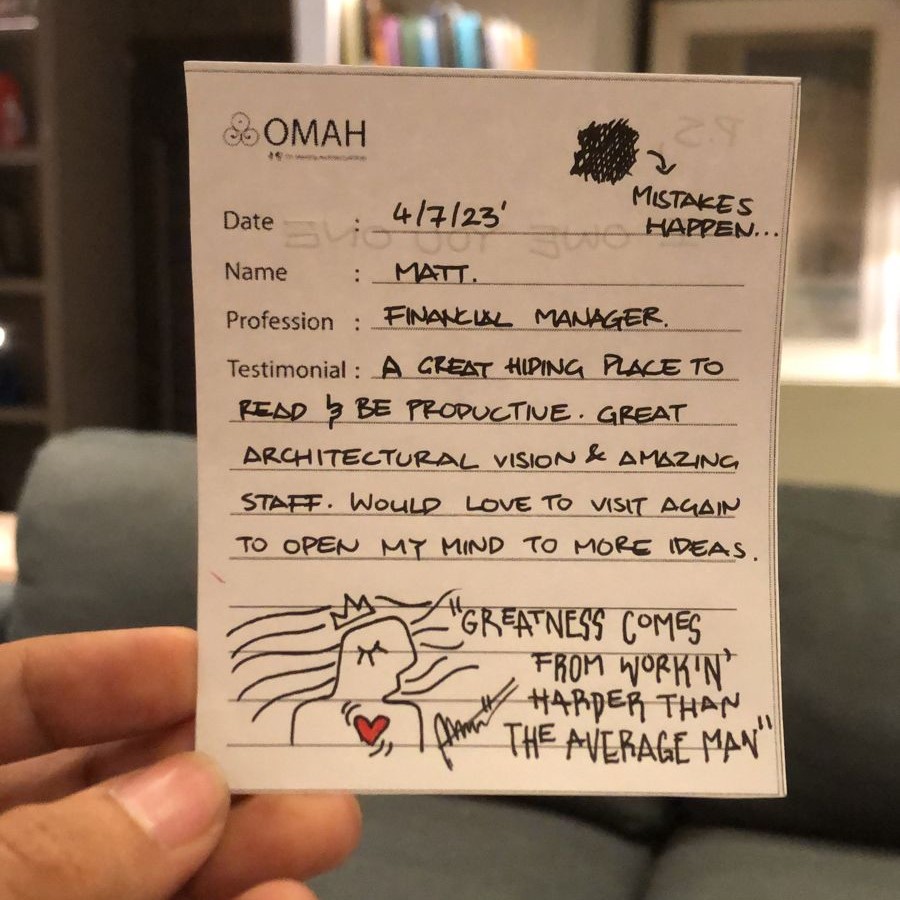 OMAH
MISTAKES
HAPPEN...
Date : 4/7/23'
Name : MATT.
Profession : FINANCIAL MANAGER.
Testimonial : A GREAT HIDING PLACE TO
READ & BE PRODUCTIVE. GREAT
ARCHITECTURAL VISION & AMAZING
STAFF. WOULD LOVE TO VISIT AGAIN
TO OPEN MY MIND TO MORE IDEAS.
"GREATNESS COMES
FROM WORKIN'
HARDER THAN
THE AVERAGE MAN"